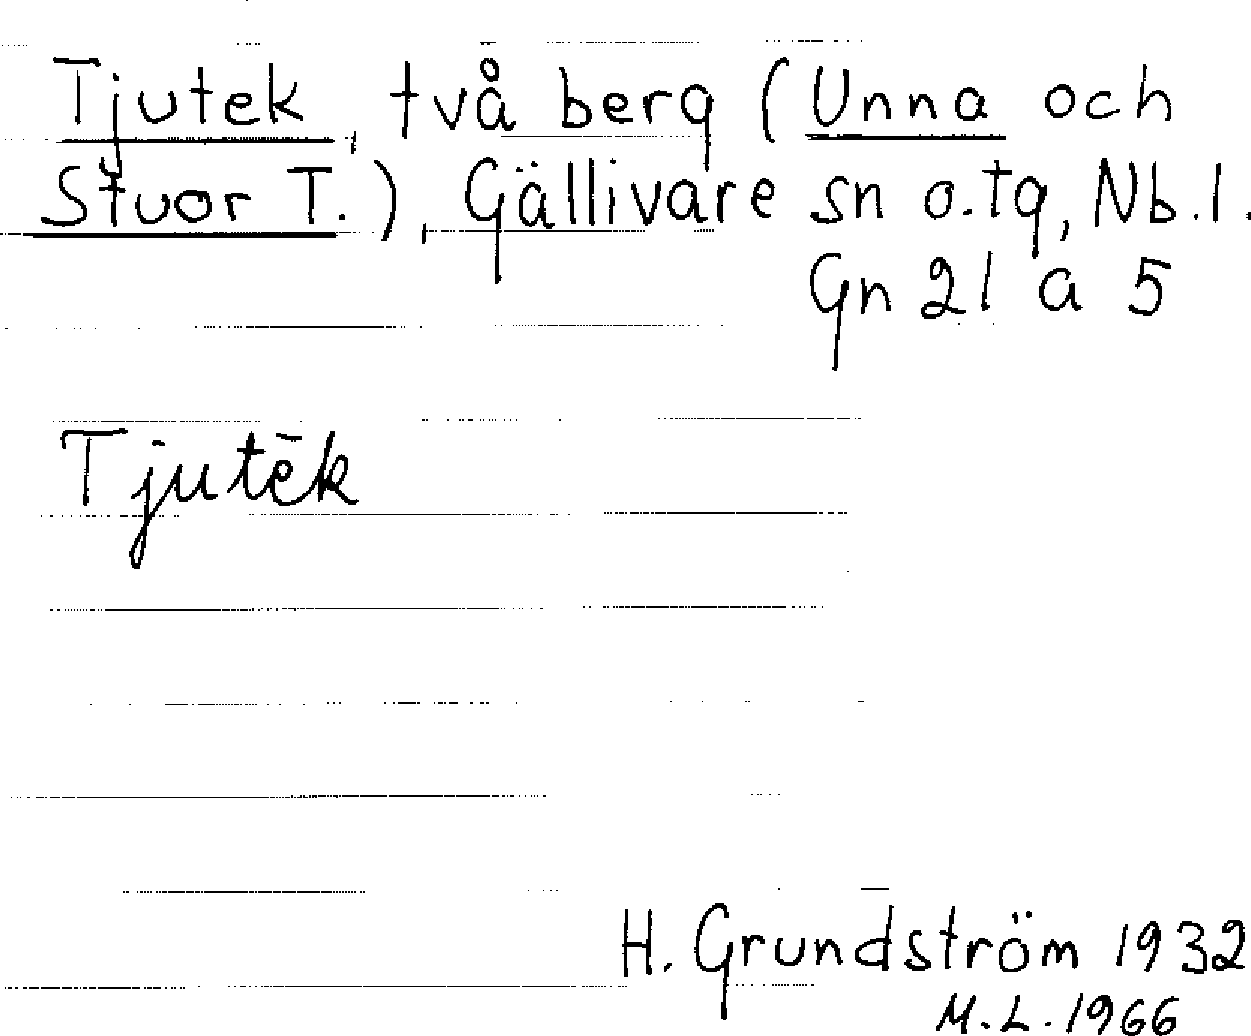 Tjutek, två berg (Unna och
Stuor T.), Gällivare sn o.tg, Nb.l.
Gn 21 a 5
Tjutēk
H. Grundström 1932
M.L. 1966